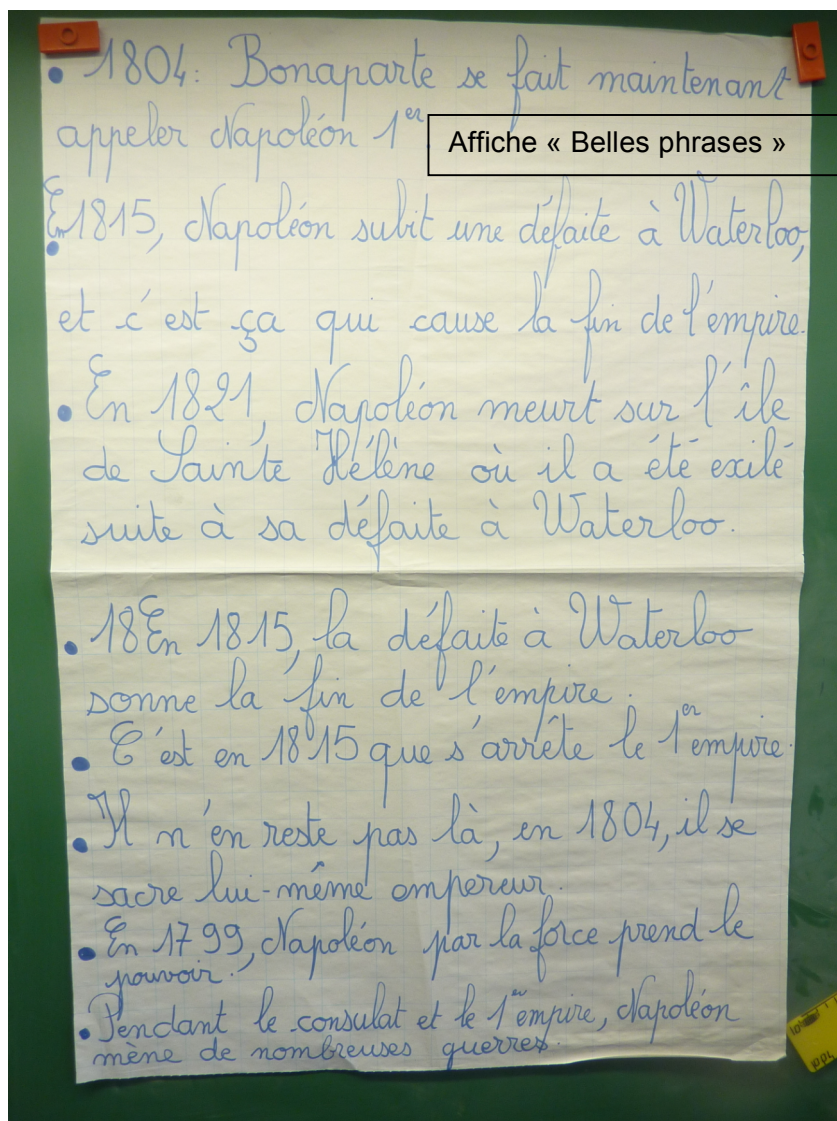 • 1804 : Bonaparte se fait maintenant
appeler Napoléon 1er
Affiche « Belles phrases »
• En 1815, Napoléon subit une défaite à Waterloo,
et c'est ça qui cause la fin de l'empire.
• En 1821, Napoléon meurt sur l'île
de Sainte Hélène où il a été exilé
suite à sa défaite à Waterloo.
• 18En 1815, la défaite à Waterloo
sonne la fin de l'empire.
• C'est en 1815 que s'arrête le 1er empire.
• Il n'en reste pas là, en 1804, il se
sacre lui-même empereur.
• En 1799, Napoléon par la force prend le
pouvoir.
• Pendant le consulat et le 1er empire, Napoléon
mène de nombreuses guerres.